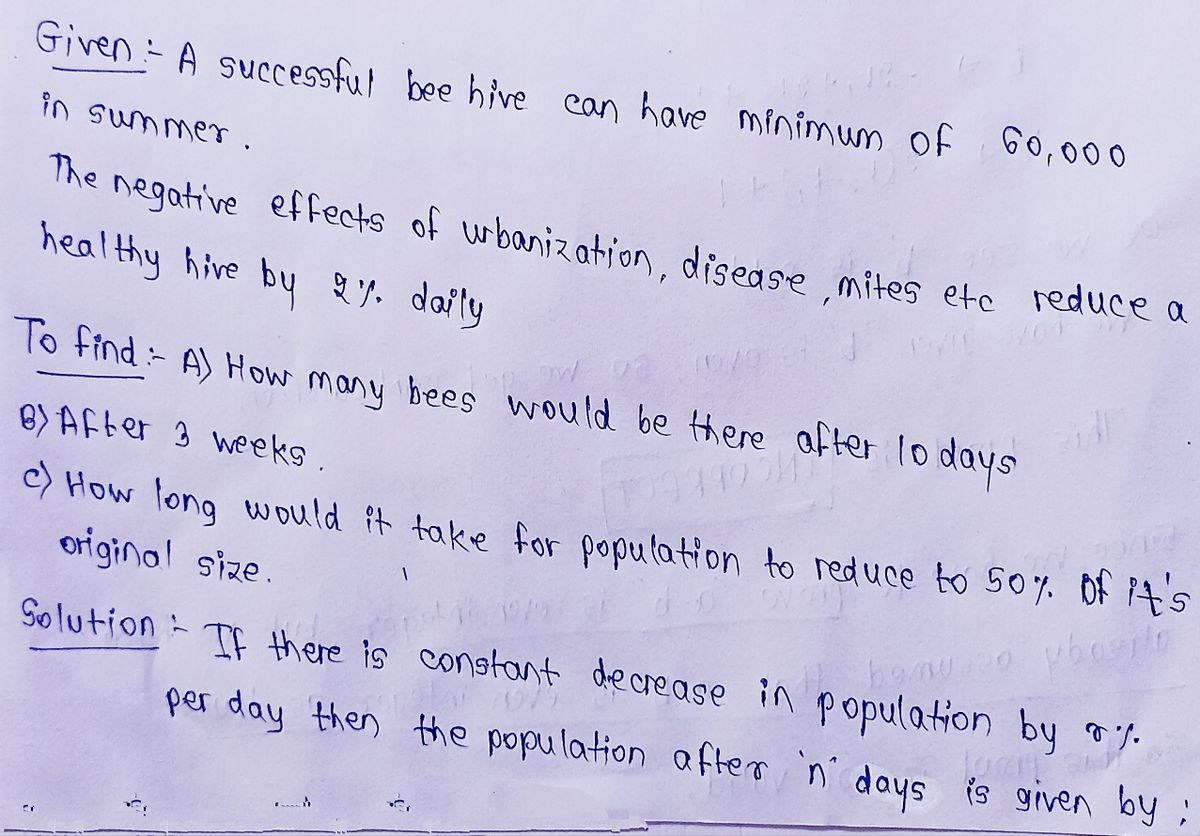 Given :- A successful bee hive can have minimum of 60,000
in summer.
The negative effects of urbanization, disease, mites etc reduce a
healthy hive by 2% daily
To find :- A) How many bees would be there after 10 days
B) After 3 weeks.
C) How long would it take for population to reduce to 50% Of it's
original size.
Solution :- If there is constant decrease in population by r%
per day then the population after 'n' days is given by :